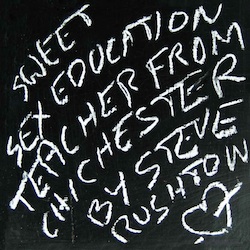 SWEET
SEX EDUCATION
TEACHER FROM
CHICHESTER
BY STEVE
RUSHTON